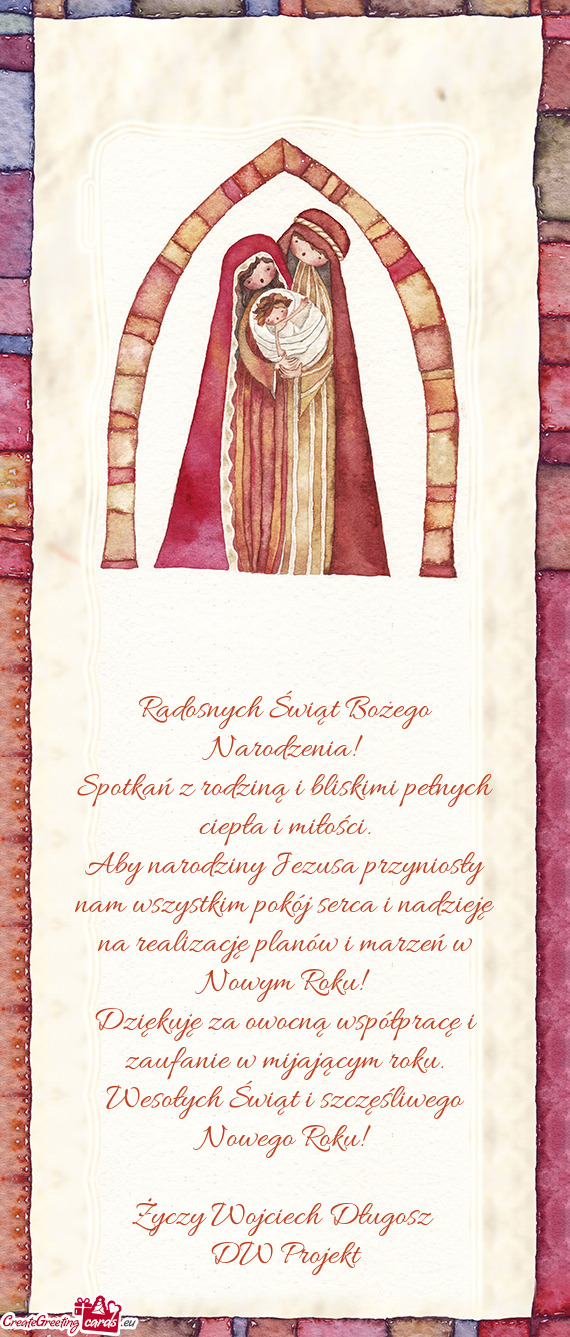 Radosnych Świąt Bożego
Narodzenia!
Spotkań z rodziną i bliskimi pełnych
ciepła i miłości.
Aby narodziny Jezusa przyniosły
nam wszystkim pokój serca i nadzieję
na realizację planów i marzeń w
Nowym Roku!
Dziękuję za owocną współpracę i
zaufanie w mijającym roku.
Wesołych Świąt i szczęśliwego
Nowego Roku!
Życzy Wojciech Długosz
DW Projekt
CreateGreeting cards .eu